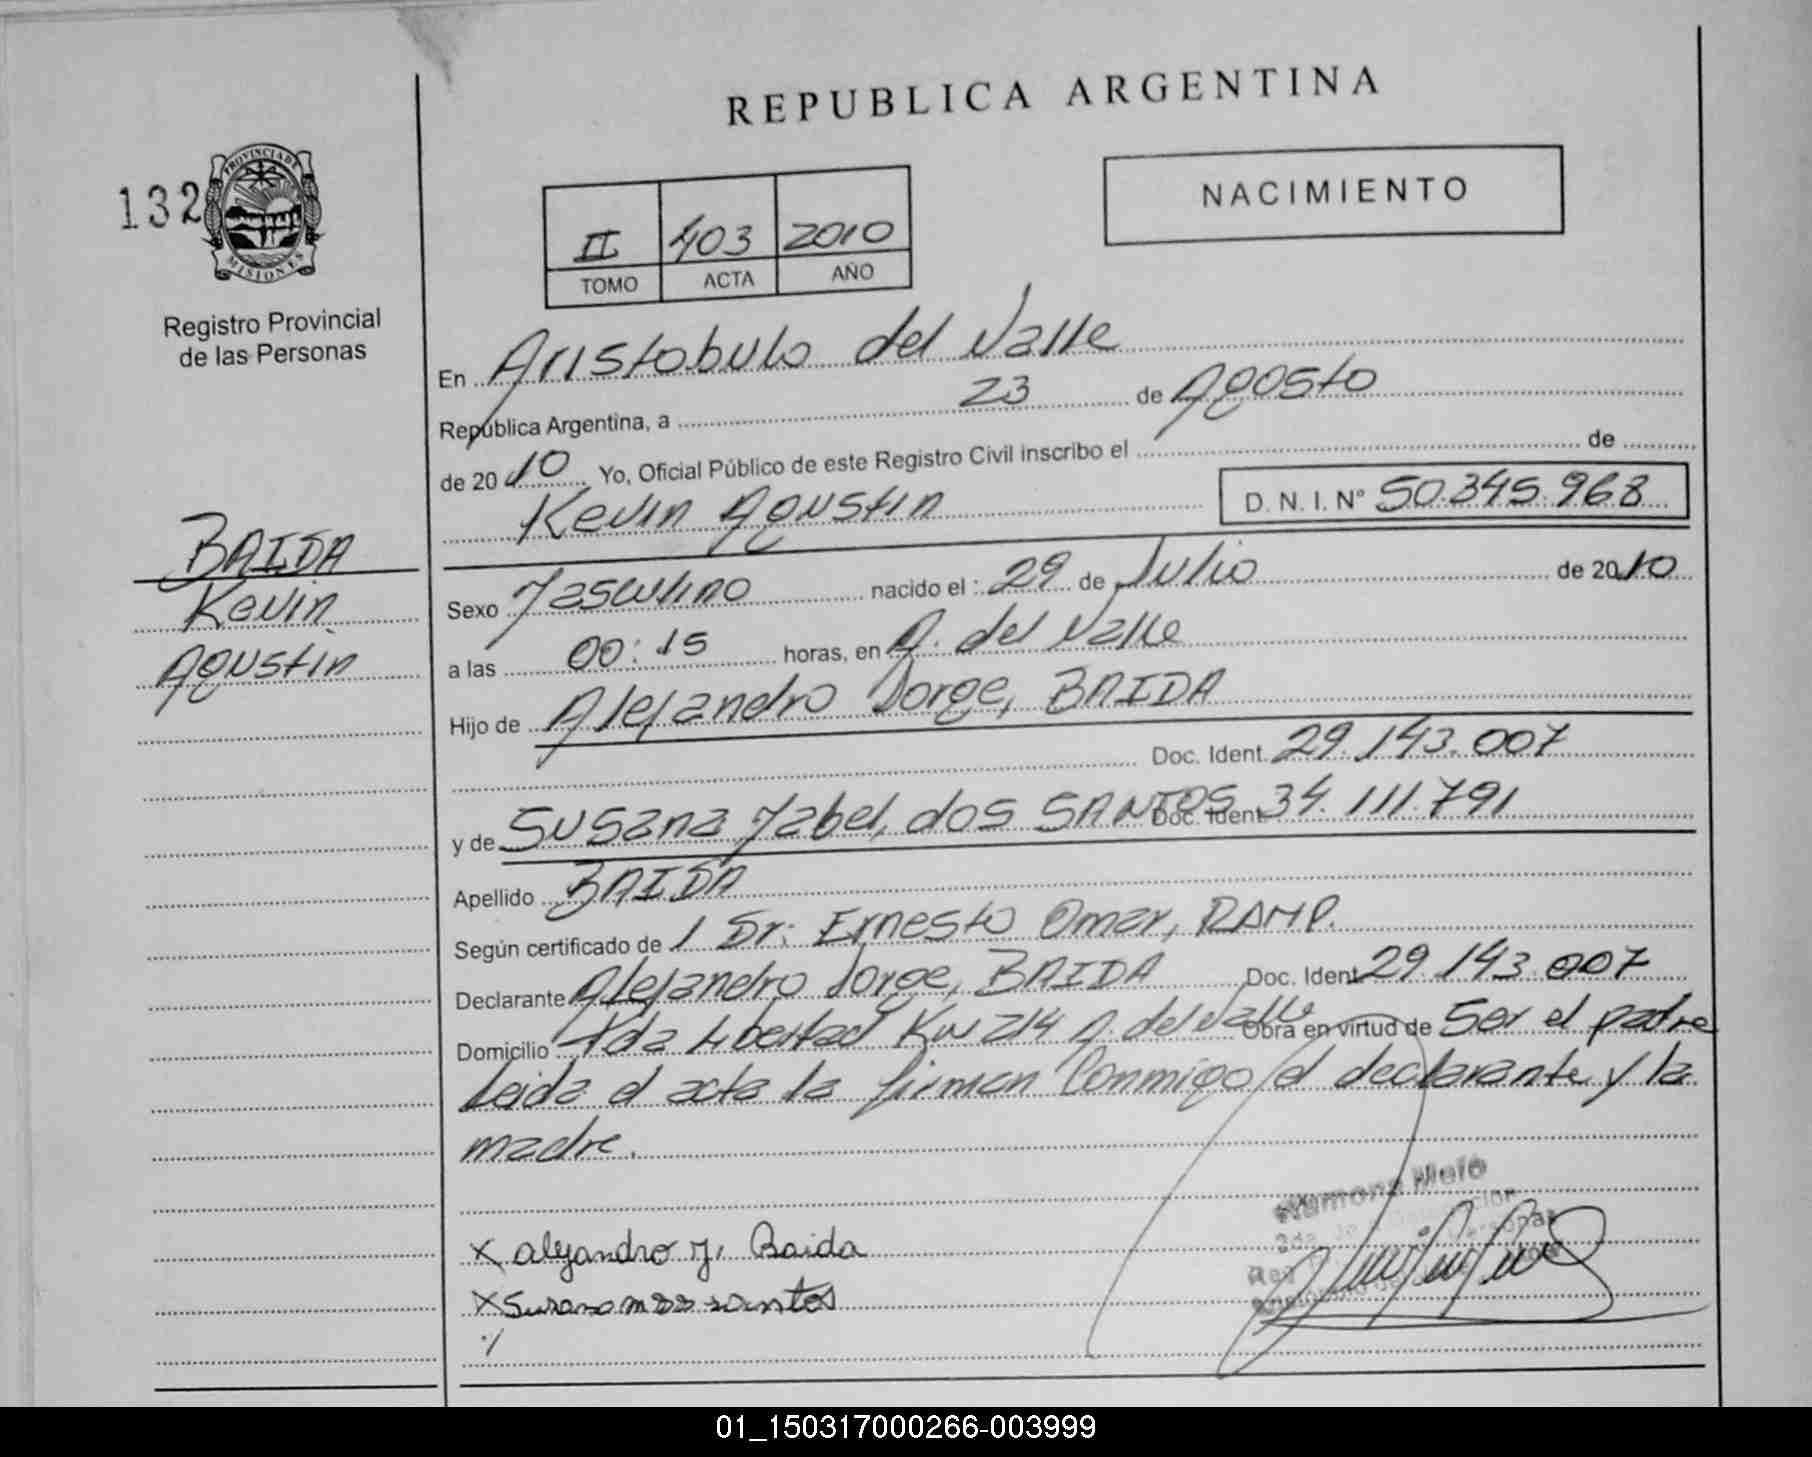 REPUBLICA ARGENTINA
132
PROVINCIA DE
MISIONES
Registro Provincial
de las Personas
II 403 2010
TOMO ACTA AÑO
NACIMIENTO
En Aristobulo del Valle
República Argentina, a 23 de Agosto
de 2010 Yo, Oficial Público de este Registro Civil inscribo el de
Kevin Agustin D. N. I. Nº 50.345.968
BAIDA
Kevin
Agustin
Sexo Masculino nacido el : 29 de Julio de 2010
a las 00:15 horas, en A. del Valle
Hijo de Alejandro Jorge, BAIDA
Doc. Ident. 29.143.007
y de Susana Mabel, dos SANTOS Doc. Ident. 34.111.791
Apellido BAIDA
Según certificado de / Dr: Ernesto Omar, RAMP.
Declarante Alejandro Jorge, BAIDA Doc. Ident. 29.143.007
Domicilio Libertad Km 214 A. del Valle Obra en virtud de Ser el padre
Leida el acta la firman Conmigo el declarante y la
madre.
Ramona Melo
x alejandro J. Baida
x Susana M santos
01_150317000266-003999